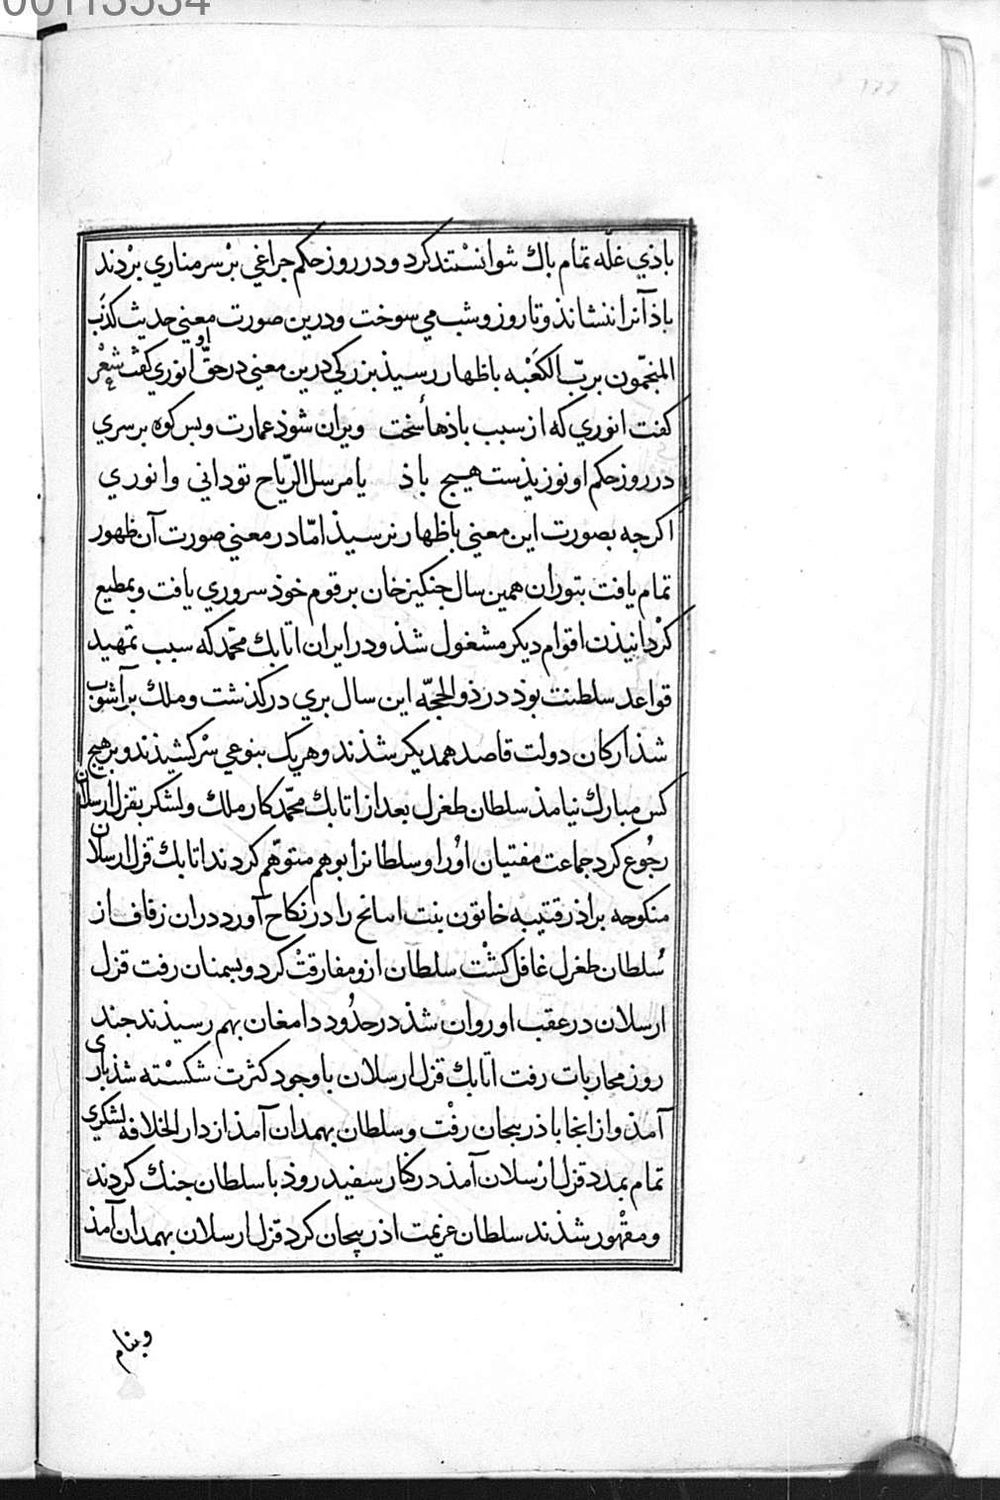 00113534
باذي غلّه تمام باك نتوانستند كرد و در روز حكم جراغي بر سر مناري بردند
باذ آنرا ننشاند و تا روز و شب مي سوخت و درين صورت معني حديث كذب
المنجّمون بربّ الكعبه باظهار رسيذ بزركي درين معني در حقّ انوري كفت شعر
كفت انوري كه از سبب باذهاء سخت ويران شوذ عمارت و بس كوه بر سري
در روز حكم او نوزيذست هيج باذ يا مرسل الرّياح تو داني و انوري
اكرجه بصورت اين معني باظهار نرسيذ امّا در معني صورت آن ظهور
تمام يافت بتوران همين سال جنكيز خان بر قوم خوذ سروري يافت و بمطيع
كردانيذن اقوام ديكر مشغول شذ و در ايران اتابك محمّد كه سبب تمهيد
قواعد سلطنت بوذ در ذو الحجّه اين سال بري در كذشت و ملك بر آشوب
شذ اركان دولت قاصد همديكر شذند و هريك بنوعي سر كشيذند و بر هيج
كس مبارك نيامذ سلطان طغرل بعد از اتابك محمّد كار ملك و لشكر بقزل ارسلان
رجوع كرد جماعت مفتيان اورا و سلطانرا بوهم متوهّم كردند اتابك قزل ارسلان
منكوحه براذر قتيبه خاتون بنت اينانج را در نكاح آورد در ان زفاف از
سلطان طغرل غافل كشت سلطان ازو مفارقت كرد و بسمنان رفت قزل
ارسلان در عقب او روان شذ در حدود دامغان بهم رسيذند جند
روز محاربات رفت اتابك قزل ارسلان با وجود كثرت شكسته شذ بري
آمذ و از انجا باذربيجان رفت و سلطان بهمدان آمذ از دار الخلافه لشكري
تمام بمدد قزل ارسلان آمذ در كنار سفيد روذ با سلطان جنك كردند
و مقهور شذند سلطان عزيمت اذربيجان كرد قزل ارسلان بهمدان آمذ
و بنام